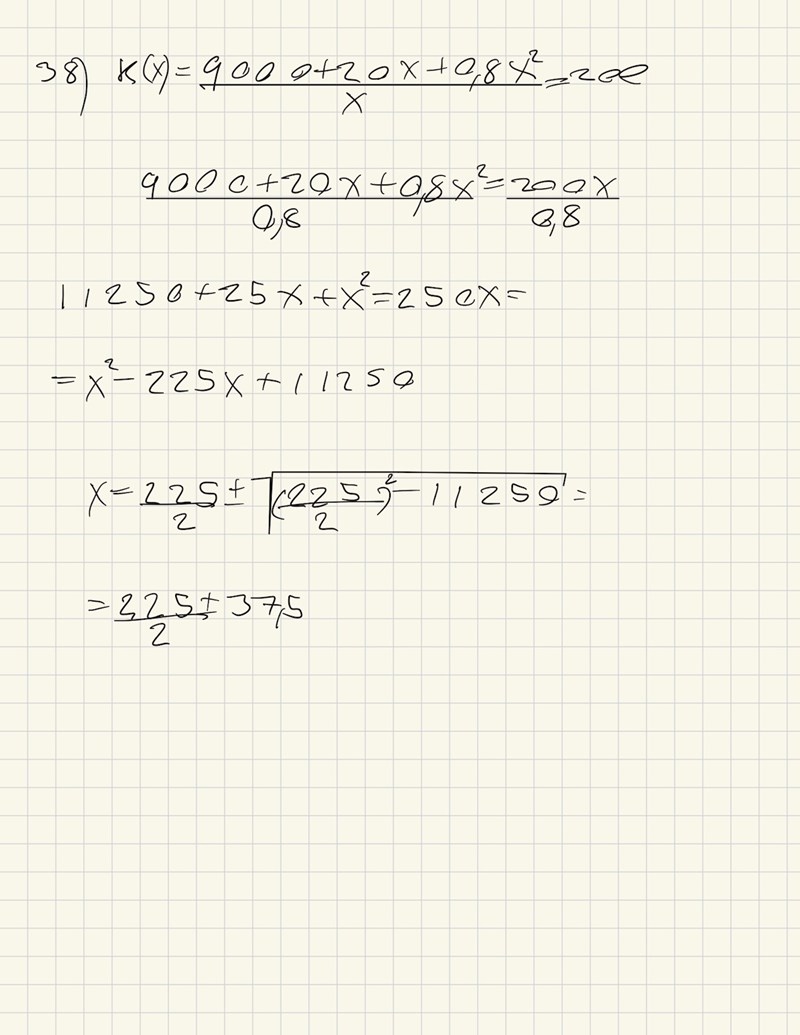 38) K(x) = (9000+20x+0,8x²)/x = 200
(9000+20x+0,8x²)/0,8 = 200x/0,8
11250+25x+x²=250x=
=x²-225x+11250
x=225/2 ± √((225/2)²-11250) =
=225/2 ± 37,5